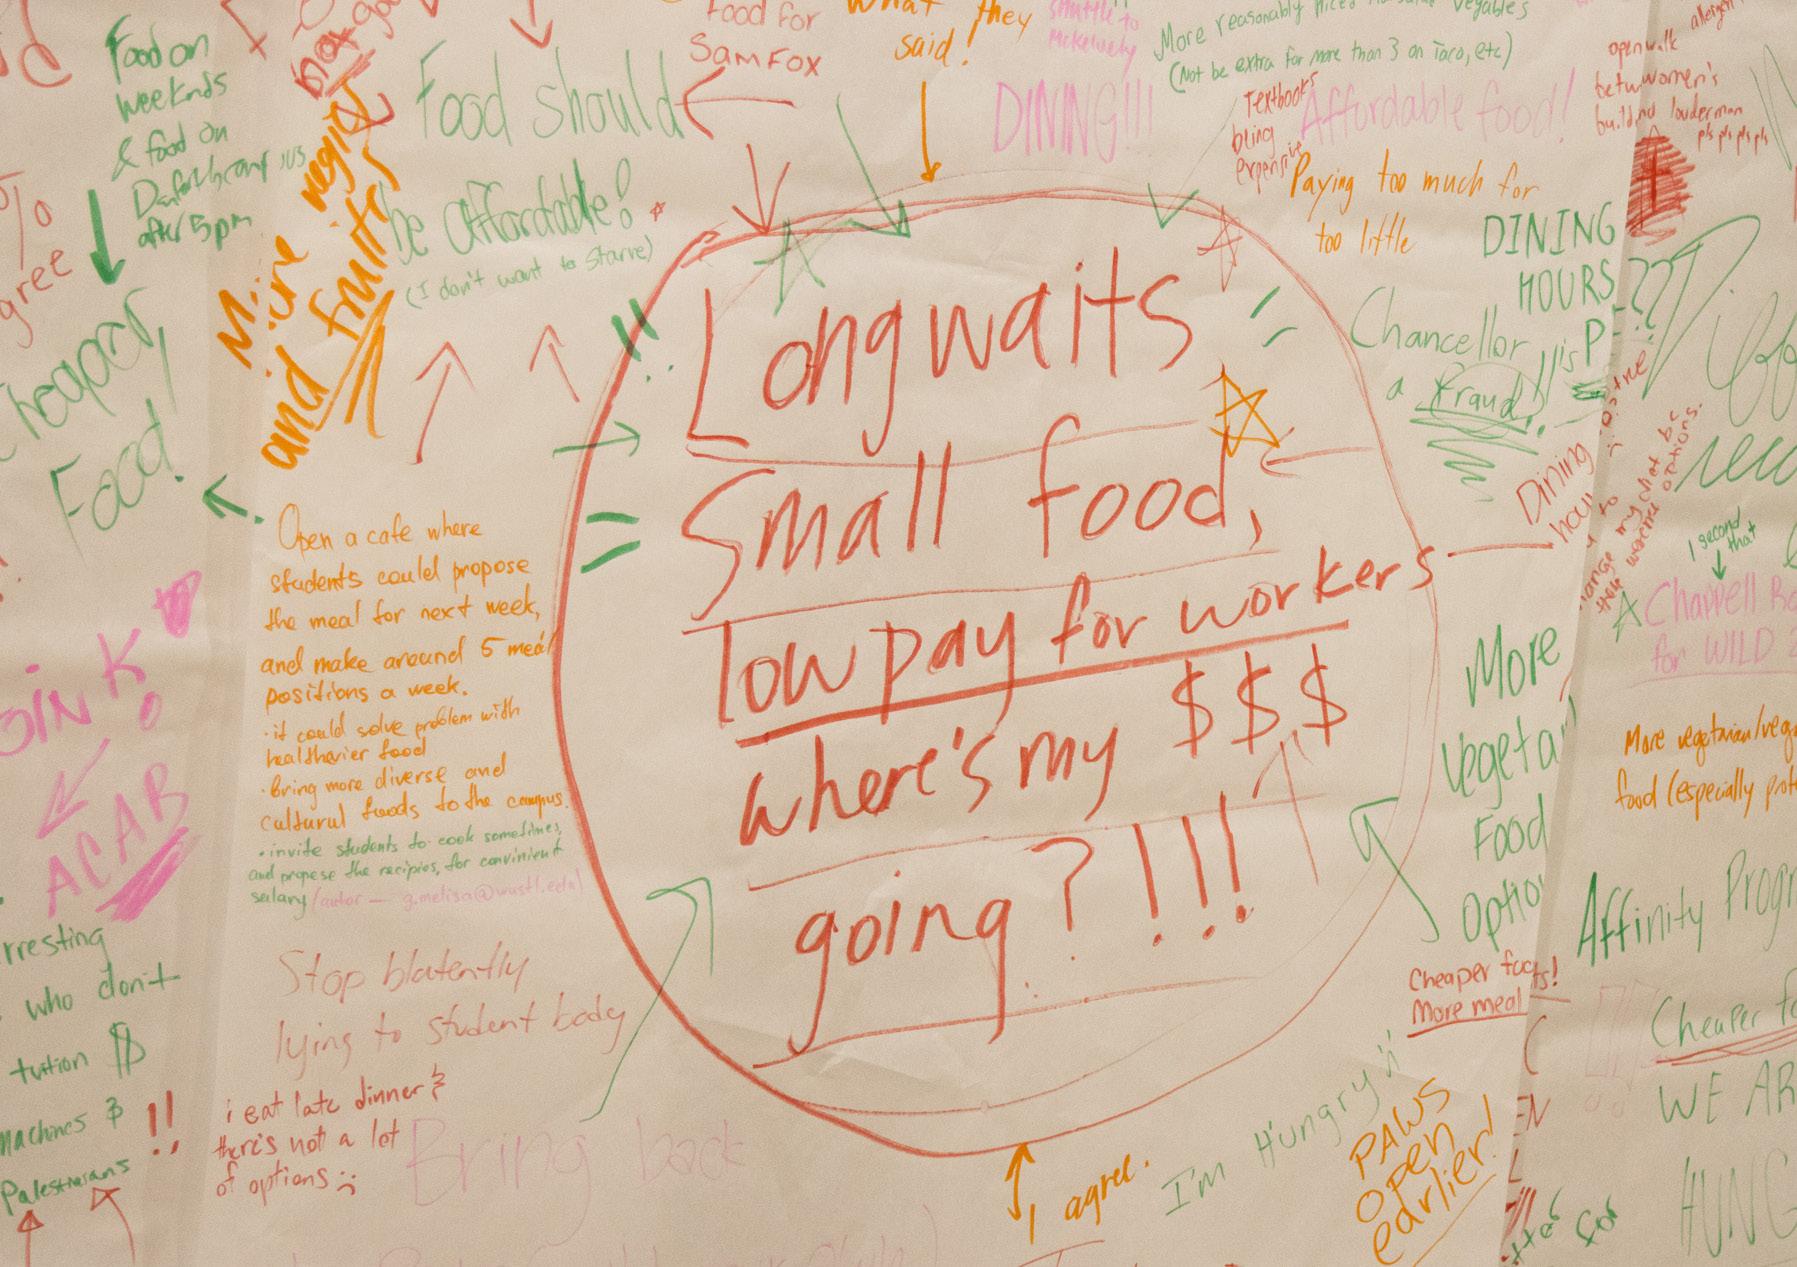 Food on
weekends
& food on
Danforth campus
after 5pm
gree
Cheaper
Food!
More veggies
and fruits
food for
SAM FOX
Food should
be affordable!
(I don't want to starve)
What they
said!
shuttle to
McKelvey
DINING!!!
More reasonably priced
(Not be extra for more than 3 on Taco, etc)
Textbooks
being
expensive
Affordable food!
Paying too much for
too little
open walk
betw women's
building louderman
pls pls pls pls
DINING
HOURS
??
Chancellor is
a fraud!!
Long waits
Small food,
low pay for workers
where's my $$$
going?!!!
Open a cafe where
students could propose
the meal for next week,
and make around 5 meal
positions a week.
· it could solve problem with
healthavier food
· Bring more diverse and
cultural foods to the campus.
· invite students to cook sometimes,
and propese the recipios, for convinient
salary (autor — g.melisa@wustl.edu)
OINK!
ACAB
rresting
who don't
tuition $
Machines &
Palestinians
!!
Stop blatently
lying to student body
i eat late dinner &
there's not a lot
of options :(
Bring back
I agree.
I'm Hungry
PAWS
open
earlier!
Dining
hall
1 second
that
Chappell Ro
for WILD
More
Vegeta
Food
Optio
More vegetarian/vega
food (especially prot
Affinity Progr
Cheaper
More meal
Cheaper fo
WE AR
HUNG